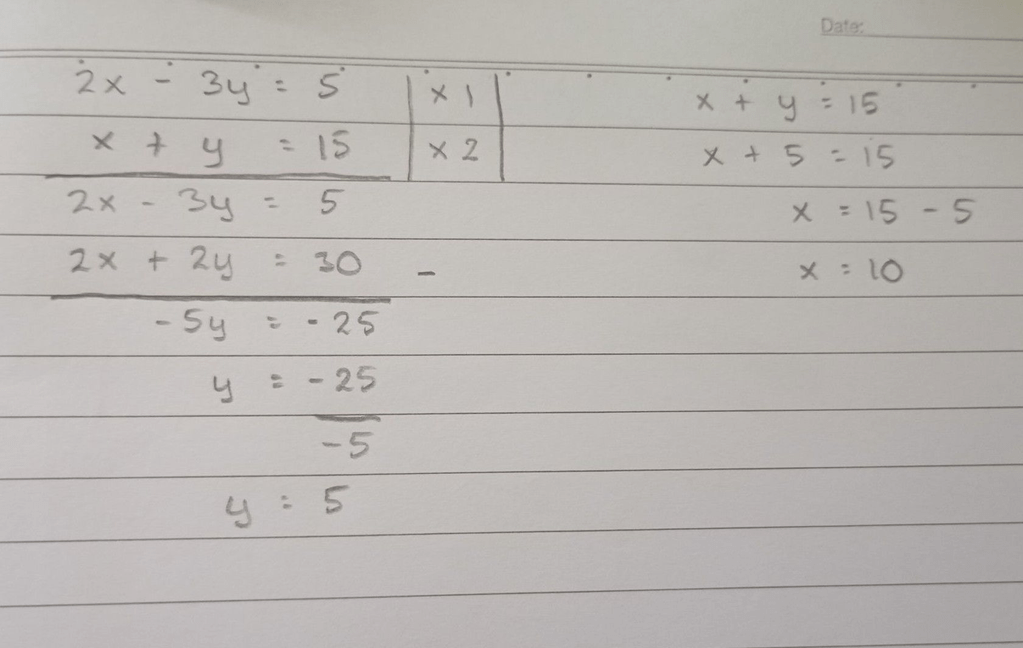 Date:
2x - 3y = 5 | x 1 |
x + y = 15 | x 2 |
2x - 3y = 5
2x + 2y = 30 -
-5y = -25
y = -25
-5
y = 5
x + y = 15
x + 5 = 15
x = 15 - 5
x = 10